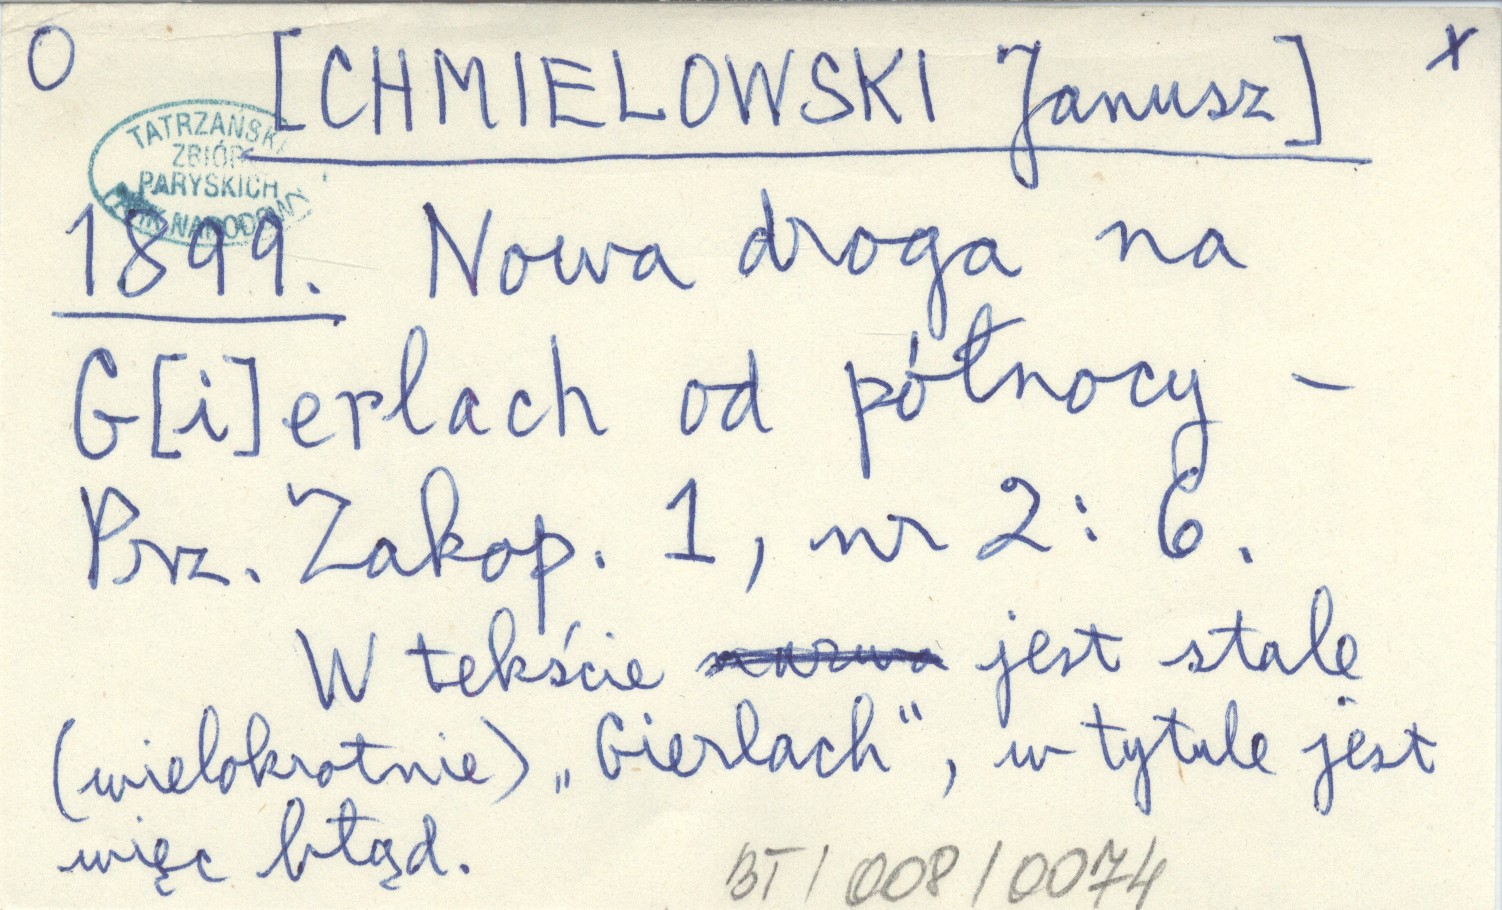 O [CHMIELOWSKI Janusz] x
TATRZAŃSKI
ZBIÓR
PARYSKICH
NARODOWY
1899. Nowa droga na
G[i]erlach od północy –
Prz. Zakop. 1, nr 2: 6.
W tekście nazwa jest stale
(wielokrotnie) „Gierlach“, w tytule jest
więc błąd.
BT/008/0074